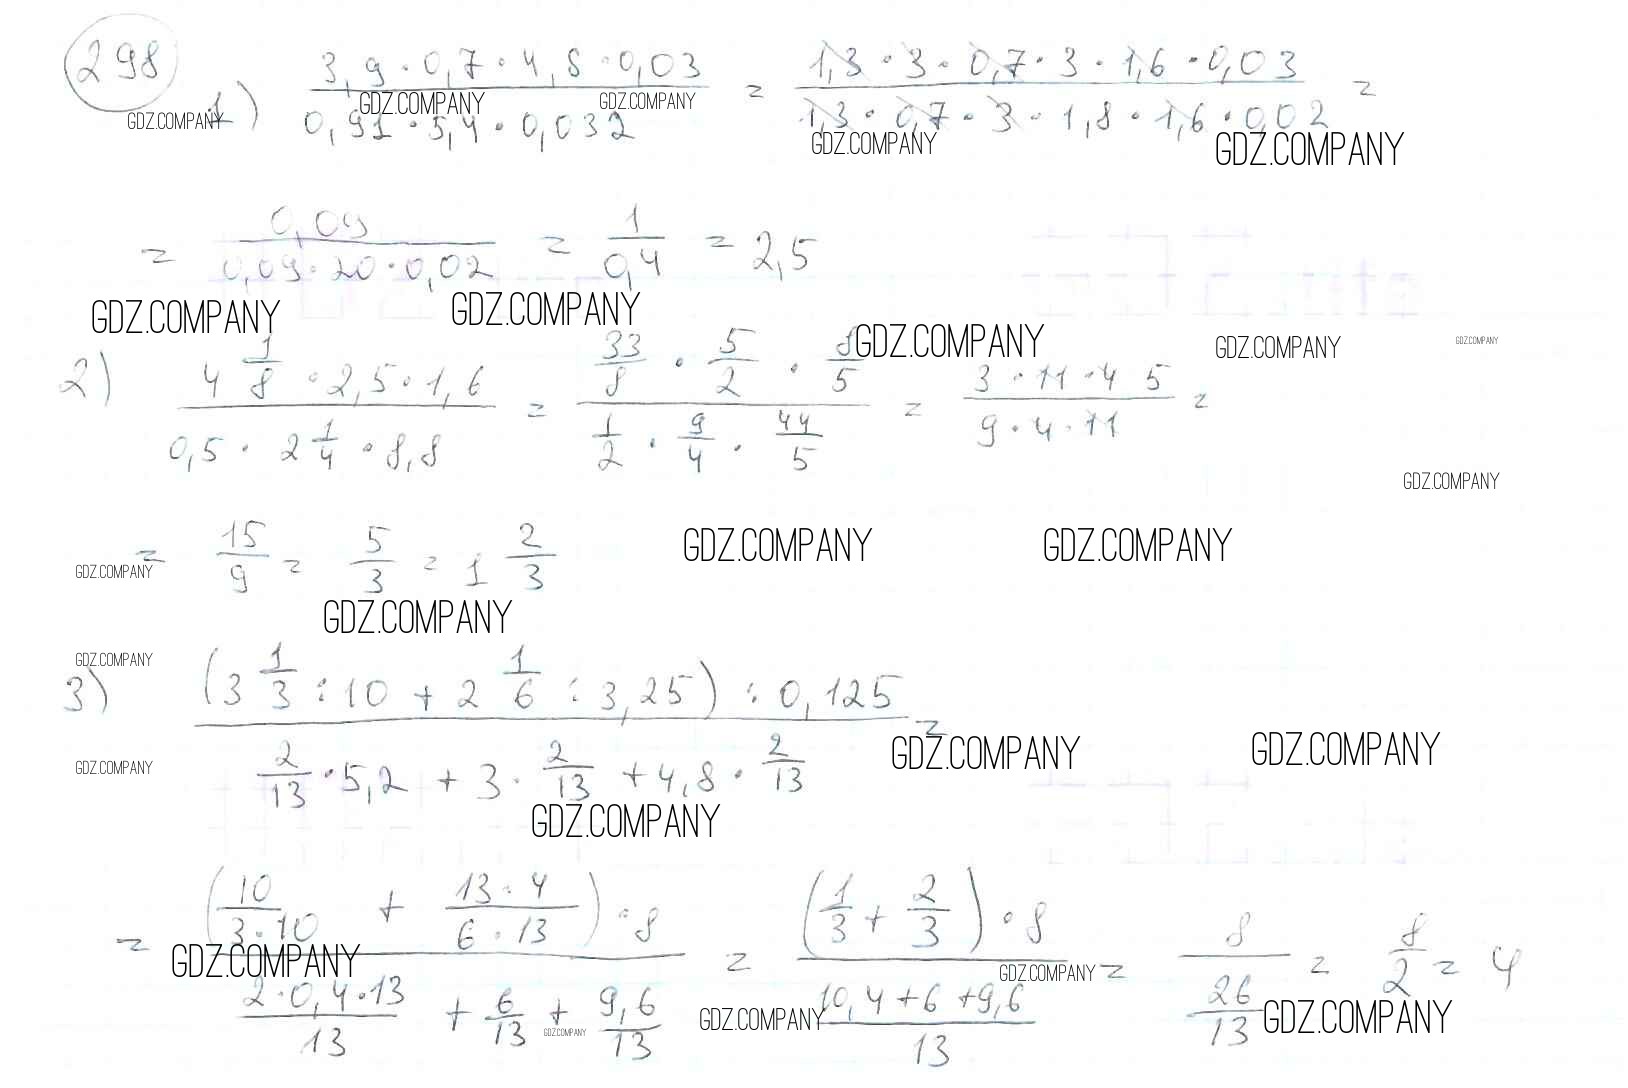 298
1) (3,9 · 0,7 · 4,8 · 0,03)/(0,91 · 5,4 · 0,032) = (1,3 · 3 · 0,7 · 3 · 1,6 · 0,03)/(1,3 · 0,7 · 3 · 1,8 · 1,6 · 0,02) =
GDZ.COMPANY GDZ.COMPANY GDZ.COMPANY GDZ.COMPANY GDZ.COMPANY
= 0,09/(0,09 · 20 · 0,02) = 1/0,4 = 2,5
GDZ.COMPANY GDZ.COMPANY GDZ.COMPANY GDZ.COMPANY GDZ.COMPANY
2) (4 1/8 · 2,5 · 1,6)/(0,5 · 2 1/4 · 8,8) = (33/8 · 5/2 · 8/5)/(1/2 · 9/4 · 44/5) = (3 · 11 · 4 5)/(9 · 4 · 11) =
GDZ.COMPANY
= 15/9 = 5/3 = 1 2/3
GDZ.COMPANY GDZ.COMPANY GDZ.COMPANY
GDZ.COMPANY
GDZ.COMPANY
3) ((3 1/3 : 10 + 2 1/6 : 3,25) : 0,125)/(2/13 · 5,2 + 3 · 2/13 + 4,8 · 2/13) =
GDZ.COMPANY GDZ.COMPANY GDZ.COMPANY
GDZ.COMPANY
= ((10/(3 · 10) + (13 · 4)/(6 · 13)) · 8)/((2 · 0,4 · 13)/13 + 6/13 + 9,6/13) = ((1/3 + 2/3) · 8)/((10,4 + 6 + 9,6)/13) = 8/(26/13) = 8/2 = 4
GDZ.COMPANY GDZ.COMPANY GDZ.COMPANY GDZ.COMPANY GDZ.COMPANY